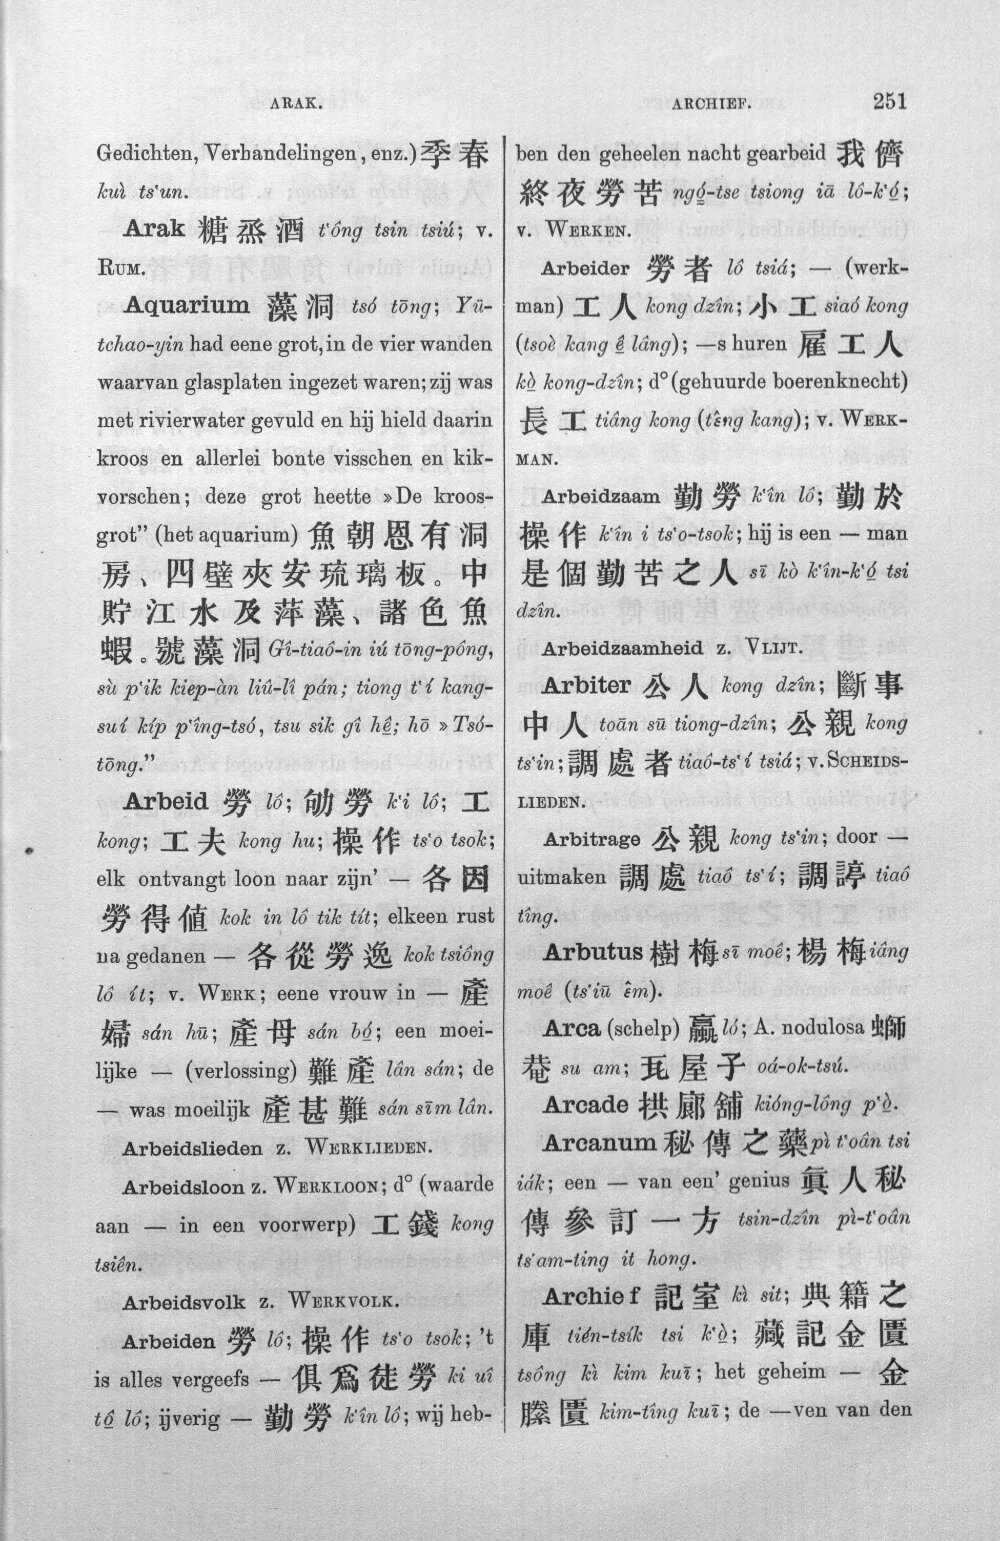 ARAK.
ARCHIEF.
251
Gedichten, Verhandelingen, enz.) 季春
kuì ts‘un.
Arak 糖烝酒 t‘ông tsin tsiú; v.
RUM.
Aquarium 藻洞 tsó tōng; Yü-
tchao-yin had eene grot, in de vier wanden
waarvan glasplaten ingezet waren; zij was
met rivierwater gevuld en hij hield daarin
kroos en allerlei bonte visschen en kik-
vorschen; deze grot heette »De kroos-
grot” (het aquarium) 魚朝恩有洞
房、四壁夾安琉璃板。中
貯江水及萍藻、諸色魚
蝦。號藻洞 Gî-tiaô-in iú tōng-pông,
sù p‘ik kiep-àn liû-lî pán; tiong t‘í kang-
suí kíp p‘îng-tsó, tsu sik gî hê; hō »Tsó-
tōng.”
Arbeid 勞 lô;劬勞 k‘i lô; 工
kong; 工夫 kong hu; 操作 ts‘o tsok;
elk ontvangt loon naar zijn’ — 各因
勞得値 kok in lô tik tít; elkeen rust
na gedanen — 各從勞逸 kok tsiông
lô ít; v. WERK; eene vrouw in — 產
婦 sán hū; 產母 sán bó; een moei-
lijke — (verlossing) 難產 lân sán; de
— was moeilijk 產甚難 sán sīm lân.
Arbeidslieden z. WERKLIEDEN.
Arbeidsloon z. WERKLOON; d° (waarde
aan — in een voorwerp) 工錢 kong
tsiên.
Arbeidsvolk z. WERKVOLK.
Arbeiden 勞 lô; 操作 ts‘o tsok; ’t
is alles vergeefs — 俱爲徒勞 ki uî
tô lô; ijverig — 勤勞 k‘în lô; wij heb-
ben den geheelen nacht gearbeid 我儕
終夜勞苦 ngó-tse tsiong iā lô-k‘ó;
v. WERKEN.
Arbeider 勞者 lô tsiá; — (werk-
man) 工人 kong dzîn; 小工 siaó kong
(tsoè kang ê lâng); —s huren 雇工人
kò kong-dzîn; d° (gehuurde boerenknecht)
長工 tiâng kong (t‘êng kang); v. WERK-
MAN.
Arbeidzaam 勤勞 k‘în lô; 勤於
操作 k‘în i ts‘o-tsok; hij is een — man
是個勤苦之人 sī kò k‘în-k‘ó tsi
dzîn.
Arbeidzaamheid z. VLIJT.
Arbiter 公人 kong dzîn; 斷事
中人 toān sū tiong-dzîn; 公親 kong
ts‘in; 調處者 tiaô-ts‘í tsiá; v. SCHEIDS-
LIEDEN.
Arbitrage 公親 kong ts‘in; door —
uitmaken 調處 tiaô ts‘í; 調諄 tiaô
tîng.
Arbutus 樹梅 sī moê; 楊梅 iâng
moê (ts‘iū êm).
Arca (schelp) 蠃 ló; A. nodulosa 螄
菴 su am; 瓦屋子 oá-ok-tsú.
Arcade 拱廊舖 kióng-lông p‘ò.
Arcanum 秘傳之藥 pì t‘oân tsi
iák; een — van een’ genius 眞人秘
傳參訂一方 tsin-dzîn pì-t‘oân
ts‘am-ting it hong.
Archief 記室 kì sit; 典籍之
庫 tién-tsík tsi k‘ò; 藏記金匱
tsông kì kim kuī; het geheim — 金
縢匱 kim-tîng kuī; de —ven van den